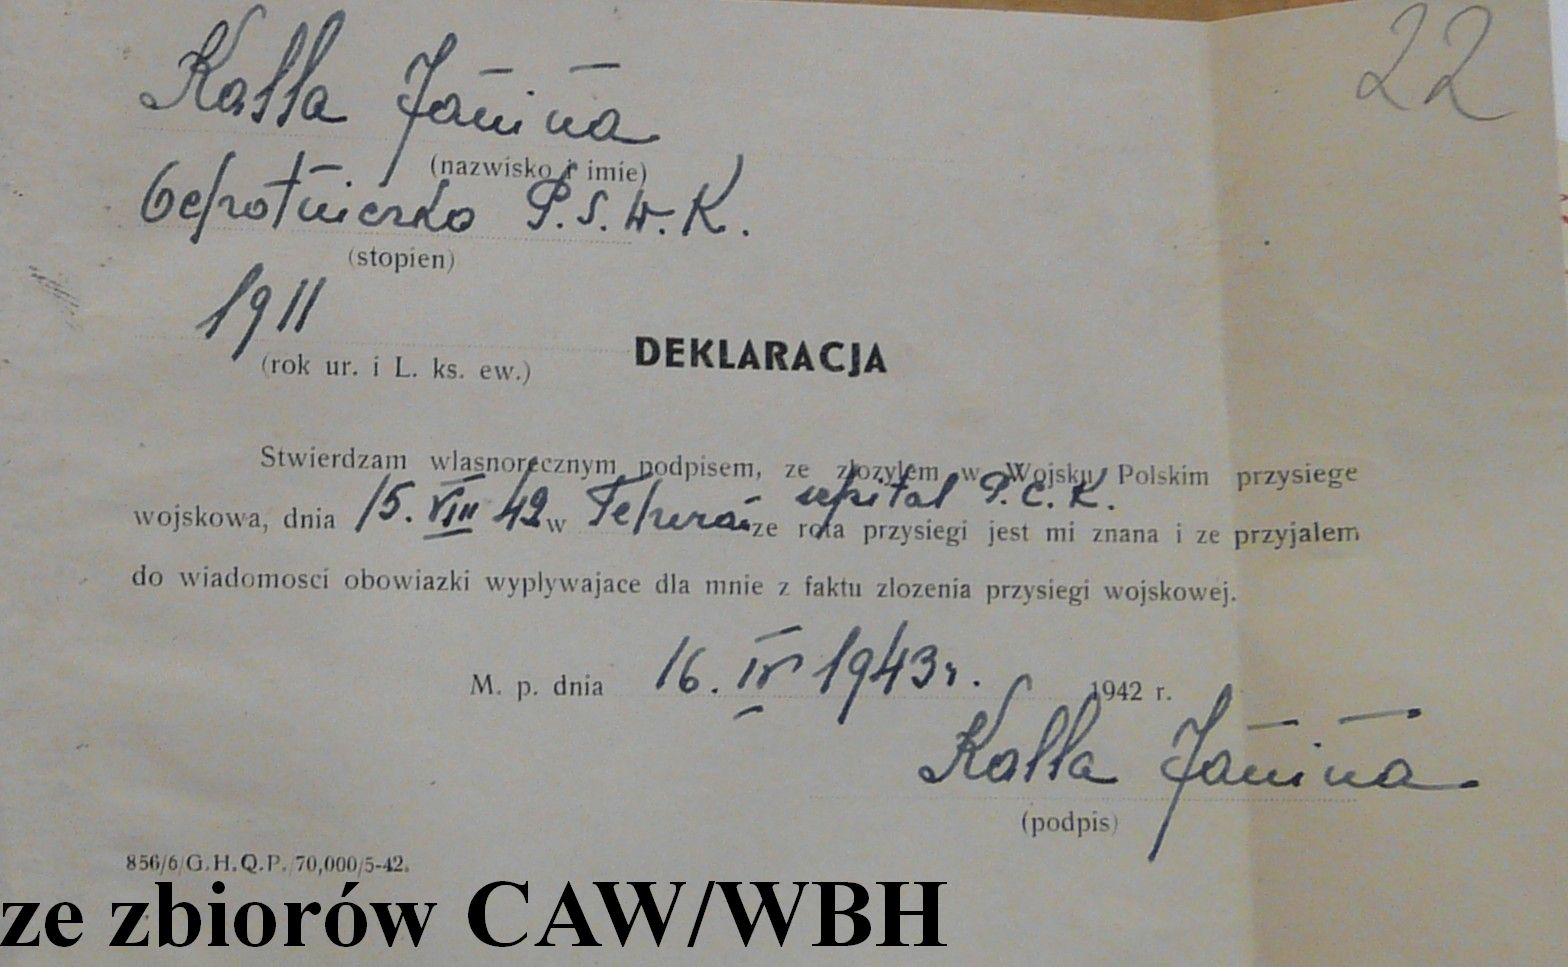 22
Kalla Janina
(nazwisko i imie)
Ochotniczka P.S.W.K.
(stopien)
1911
(rok ur. i L. ks. ew.)
DEKLARACJA
Stwierdzam wlasnorecznym podpisem, ze zlozylem w Wojsku Polskim przysiege
szpital P.C.K.
wojskowa, dnia 15. VIII 42 w Teheran ze rota przysiegi jest mi znana i ze przyjalem
do wiadomosci obowiazki wyplywajace dla mnie z faktu zlozenia przysiegi wojskowej.
M. p. dnia 16. IV 1943 r. 1942 r.
Kalla Janina
(podpis)
856/6/G.H.Q.P./70,000/5-42.
ze zbiorów CAW/WBH